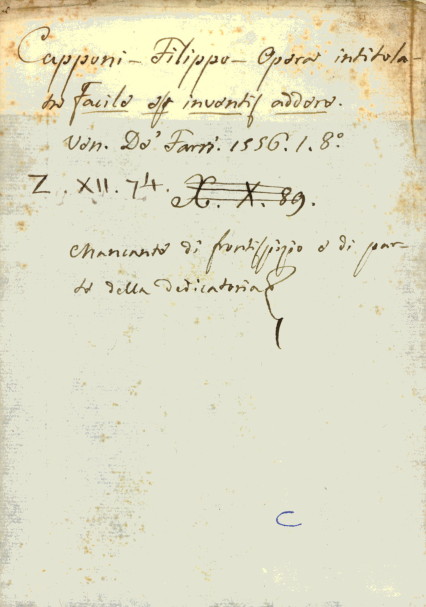 Capponi - Filippo - Opera intitola-
ta Facile est inventis addere.
Ven. De' Farri. 1556. 1. 8.°
Z. XII. 74. X. X. 89.
Mancante di frontispizio e di par-
te della dedicatoria
C